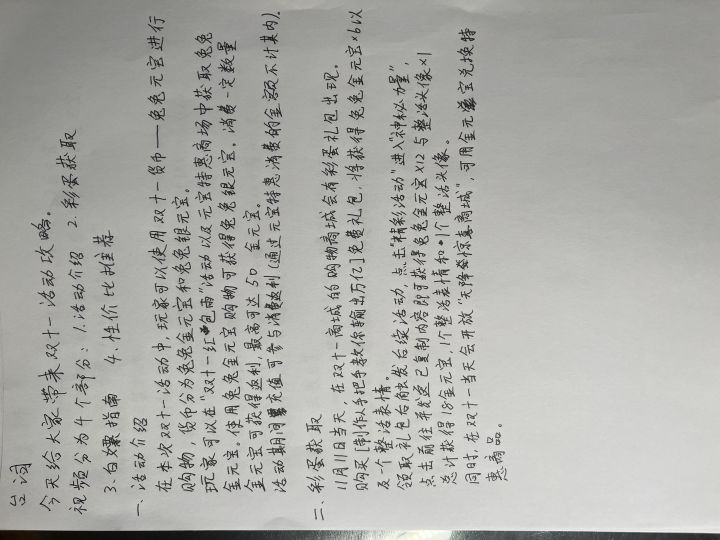 台词
今天给大家带来双十一活动攻略。
视频分为4个部分：1.活动介绍 2.彩蛋获取
3.白嫖指南 4.性价比推荐
一、活动介绍
在本次双十一活动中，玩家可以使用双十一货币——兔兔元宝进行
购物，货币分为兔兔金元宝和兔兔银元宝。
玩家可以在“双十一红包雨”活动以及元宝特惠商场中获取兔兔
金元宝，使用兔兔金元宝购物可获得兔兔银元宝。消费一定数量
金元宝可获得返利，最高可达50金元宝。
活动期间充值可参与消费返利（通过元宝特惠消费的金额不计其内）。
二、彩蛋获取
11月11日当天，在双十一商城的购物商城会有彩蛋礼包出现。
购买[制作人手把手教你输出万亿]免费礼包，将获得兔兔金元宝×6以
及一个整活表情。
领取礼包后触发后续活动，点击“精彩活动”进入“神秘力量”，
点击前往并发送已复制内容即可获得兔兔金元宝×12与整活头像×1
总计获得18金元宝，1个整活表情和1个整活头像。
同时，在双十一当天会开放“天降惊喜商城”，可用金元宝兑换特
惠商品。